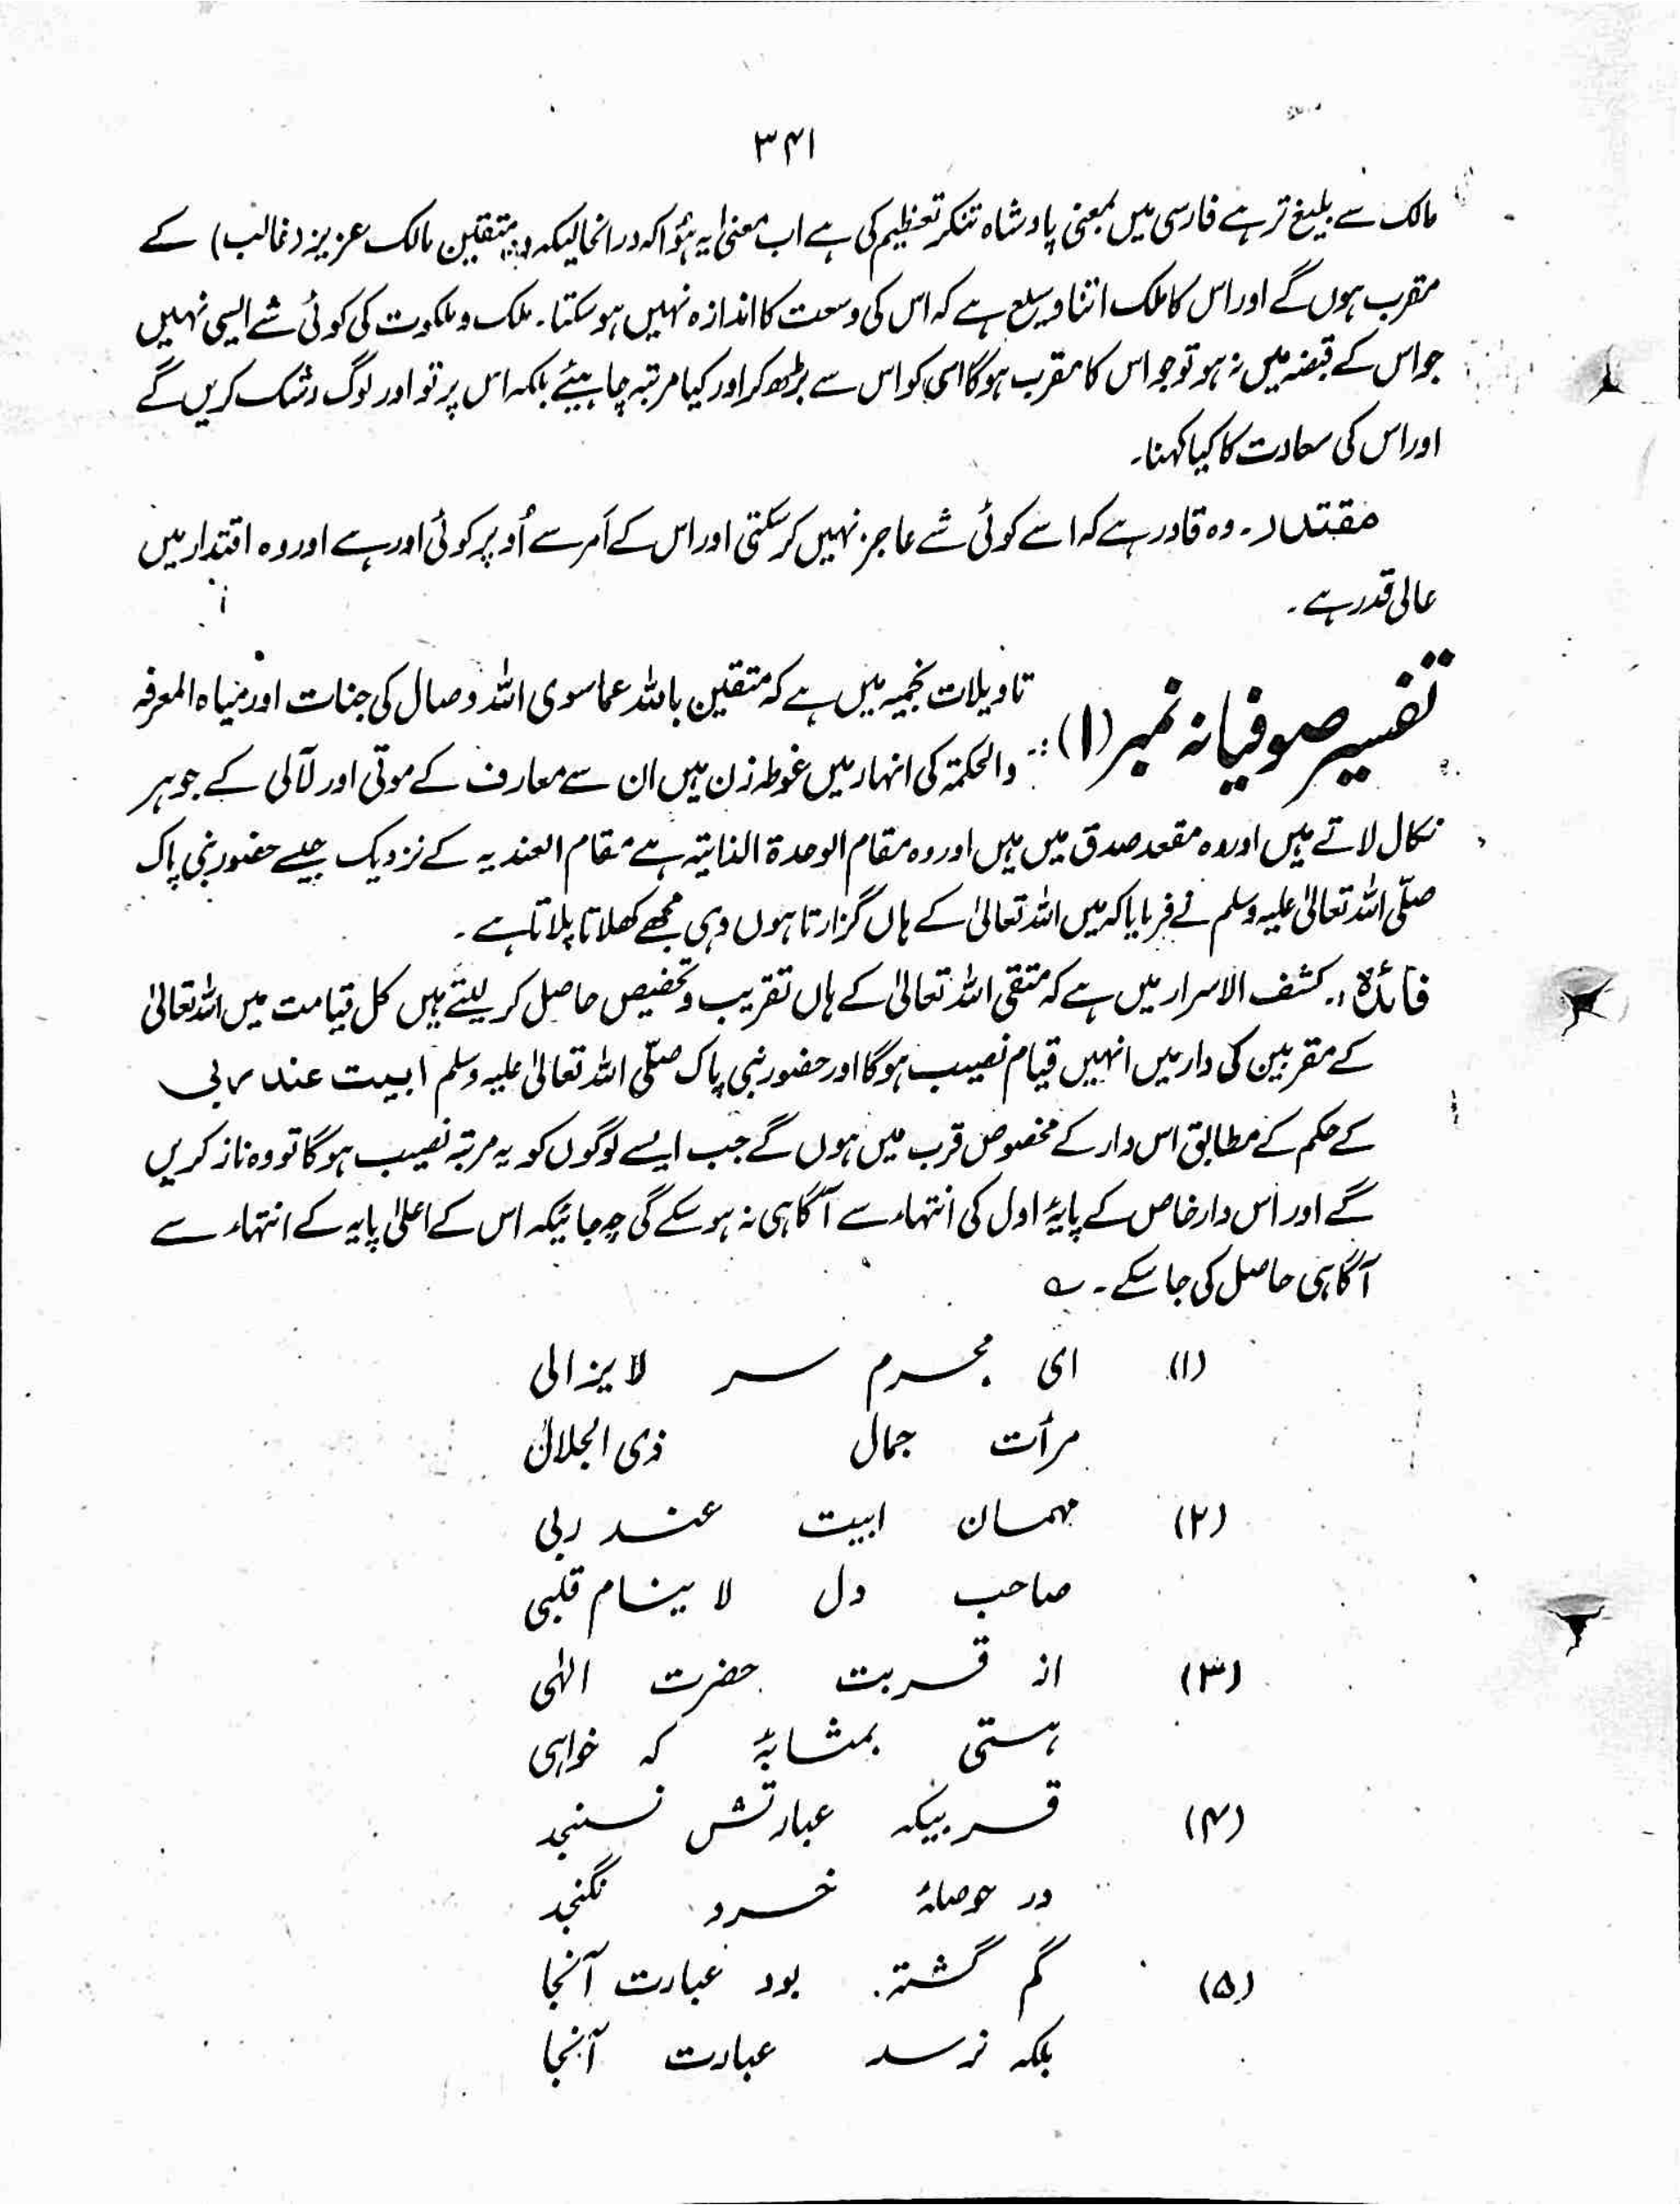 ۳۴۱
مالک سے بلیغ تر ہے فارسی میں بمعنی پادشاہ تنکر تعظیم کی ہے اب معنٰی یہ ہؤا کہ درانحالیکہ متقین مالک عزیز (غالب) کے
مقرب ہوں گے اور اس کا ملک اتنا وسیع ہے کہ اس کی وسعت کا اندازہ نہیں ہو سکتا۔ ملک و ملکوت کی کوئی شے ایسی نہیں
جو اس کے قبضہ میں نہ ہو تو جو اس کا مقرب ہوگا اسی کو اس سے بڑھ کر اور کیا مرتبہ چاہیئے بلکہ اس پر تو اور لوگ رشک کریں گے
اور اس کی سعادت کا کیا کہنا۔
مقتدر۔ وہ قادر ہے کہ اسے کوئی شے عاجز نہیں کر سکتی اور اس کے اَمر سے اُوپر کوئی اور ہے اور وہ اقتدار میں
عالی قدر ہے۔
تفسیر صوفیانہ نمبر (۱) :: تاویلات نجمیہ میں ہے کہ متقین باللہ عما سوی اللہ وصال کی جنات اور میاہ المعرفہ
والحکمۃ کی انہار میں غوطہ زن ہیں ان سے معارف کے موتی اور لآلی کے جوہر
نکال لاتے ہیں اور وہ مقعد صدق میں ہیں اور وہ مقام الوحدۃ الذاتیۃ ہے مقام العندیہ کے نزدیک جیسے حضور نبی پاک
صلّی اللہ تعالیٰ علیہ وسلم نے فرمایا کہ میں اللہ تعالیٰ کے ہاں گزارتا ہوں وہی مجھے کھلاتا پلاتا ہے۔
فائدہ :۔ کشف الاسرار میں ہے کہ متقی اللہ تعالیٰ کے ہاں تقریب و تخصیص حاصل کر لیتے ہیں کل قیامت میں اللہ تعالیٰ
کے مقربین کی دار میں انہیں قیام نصیب ہوگا اور حضور نبی پاک صلّی اللہ تعالیٰ علیہ وسلم ابیت عند ربی
کے حکم کے مطابق اس دار کے مخصوص قرب میں ہوں گے جب ایسے لوگوں کو یہ مرتبہ نصیب ہوگا تو وہ ناز کریں
گے اور اس دار خاص کے پایۂ اول کی انتہاء سے آگاہی نہ ہو سکے گی چہ جائیکہ اس کے اعلیٰ پایہ کے انتہاء سے
آگاہی حاصل کی جا سکے۔ ؎
(۱) ای محرم سر لا یزالی
مرأت جمال ذی الجلال
(۲) مہمان ابیت عند ربی
صاحب دل لا ینام قلبی
(۳) از قربت حضرت الٰہی
ہستی بمثابۂ کہ خواہی
(۴) قربیکہ عبارتش نسنجد
در حوصلۂ خرد نگنجد
(۵) گم گشتہ بود عبارت آنجا
بلکہ نرسد عبادت آنجا